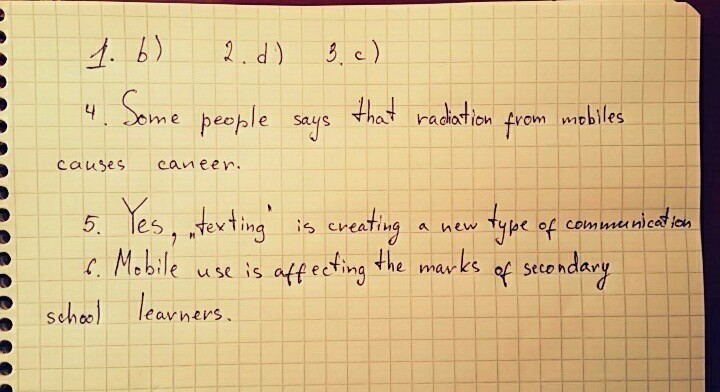 1. b) 2. d) 3. c)
4. Some people says that radiation from mobiles
causes cancer.
5. Yes, „texting" is creating a new type of communication
6. Mobile use is affecting the marks of secondary
school learners.